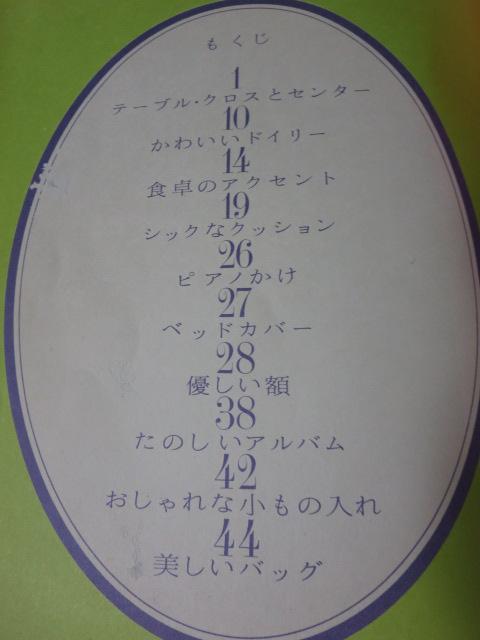 もくじ
1
テーブル・クロスとセンター
10
かわいいドイリー
14
食卓のアクセント
19
シックなクッション
26
ピアノかけ
27
ベッドカバー
28
優しい額
38
たのしいアルバム
42
おしゃれな小もの入れ
44
美しいバッグ